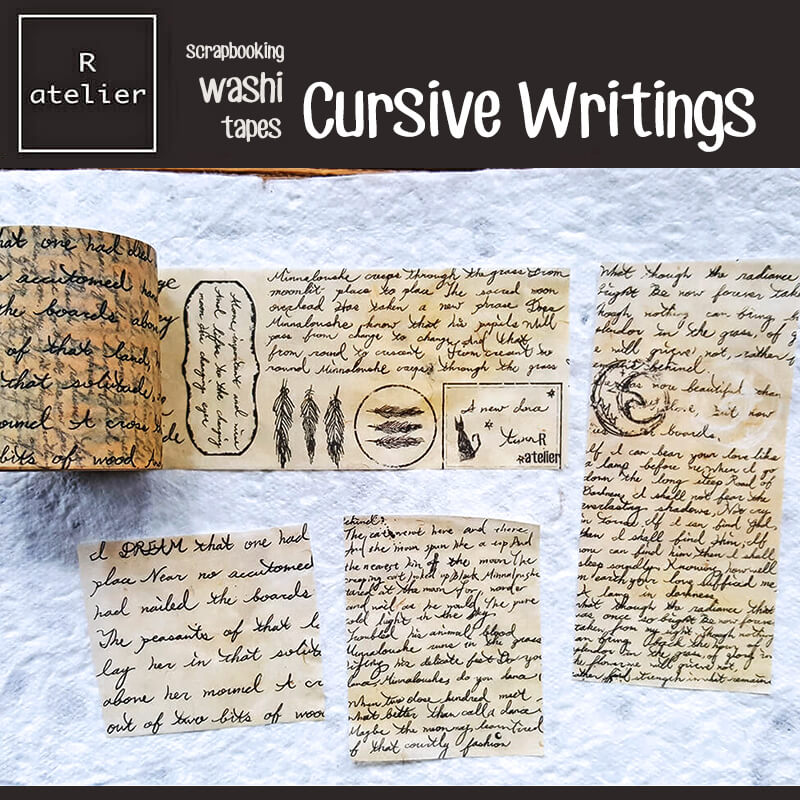 R
atelier
scrapbooking
washi
tapes
Cursive Writings
that one had died
accustomed
the boards above
of that land,
that solitude,
mound A cross
bits of wood
Alone, important and wise
And lifts to the changing
moon His changing eyes
Minnaloushe creeps through the grass From
moonlit place to place The sacred moon
overhead Has taken a new phrase Does
Minnaloushe know that his pupils Will
pass from change to change, And that
from round to crescent From crescent to
round Minnaloushe creeps through the grass
A new dance
TurnR
Ratelier
What though the radiance
bright Be now forever taken
though nothing can bring b
splendor in the grass, of g
e will grieve not, rather
behind.
was more beautiful than
love, But now
boards.
If I can bear your love like
a lamp before me, When I go
down the long steep Road of
Darkness, I shall not fear the
everlasting shadows, Nor cry
in Terror, If I can find God,
then I shall find Him, If
none can find him then I shall
sleep soundly, Knowing how well
on earth your love sufficed me,
A lamp in darkness.
What though the radiance that
was once so bright Be now forever
taken from my sight Though nothing
can bring back the hour of
splendor in the grass, of glory in
the flower, we will grieve not,
rather find strength in what remains
I DREAM that one had
place Near no accutomed
had nailed the boards
The peasants of that l
lay her in that solitu
above her mound A cr
out of two bits of wood
behind?
The cat went here and there
And the moon spun like a top And
the nearest kin of the moon The
creeping cat looked up Black Minnaloushe
stared at the moon For, wander
and wail as he would The pure
cold light in the sky
Troubled his animal blood
Minnaloushe runs in the grass
Lifting his delicate feet Do you
dance, Minnaloushe, do you dance
When two close kindred meet
What better than call a dance
Maybe the moon may learn Tired
of that courtly fashion